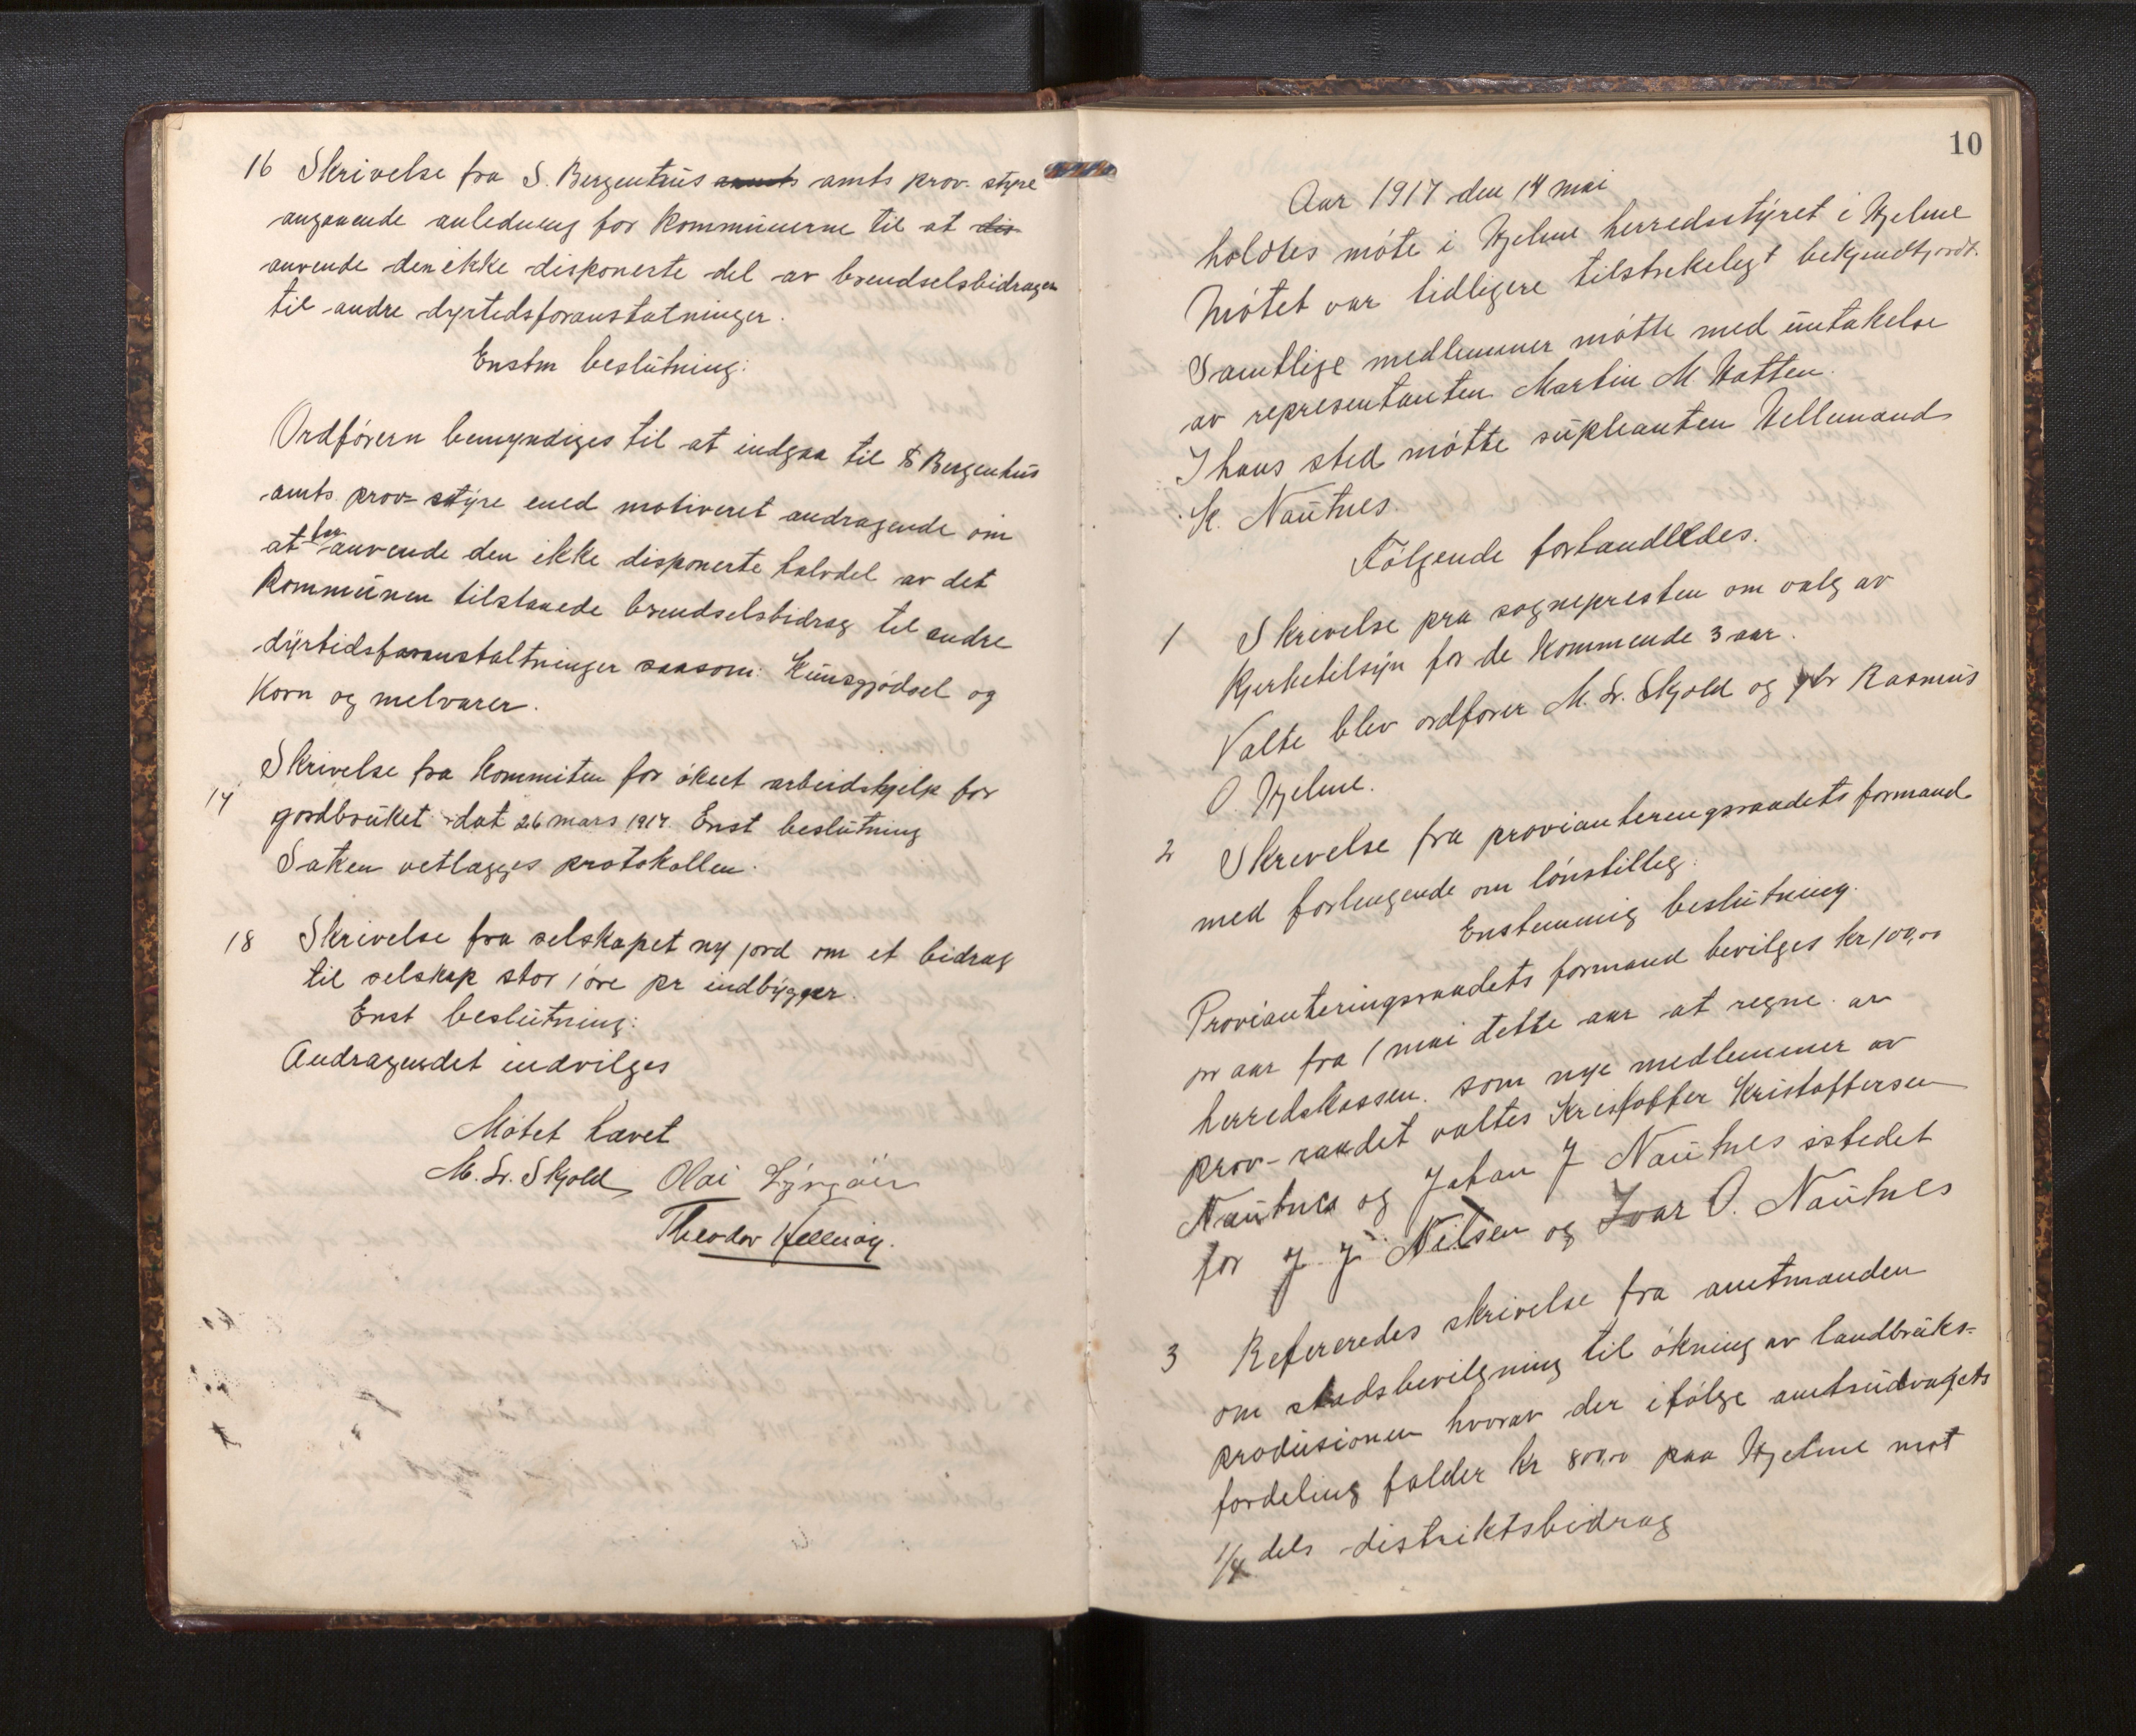 16 Skrivelse fra S. Bergenhus amts amts prov. styre
angaaende anledning for kommunerne til at dis
anvende den ikke disponerte del av brendselsbidragen
til andre dyrtidsforanstatninger.
Enstm beslutning:
Ordførern bemyndiges til at indgaa til S Bergenhus
amts. prov- styre med motiveret andragende om
at faa anvende den ikke disponerte halvdel av det
Kommunen tilstaaede brendselsbidrag til andre
dyrtidsforanstaltninger saasom: Kunsgjødsel og
Korn og melvarer.
17 Skrivelse fra kommiten for øket arbeidshjelp for
jordbruket dat 26 mars 1917. Enst beslutning
Saken vetlægges protokollen.
18 Skrivelse fra selskapet ny jord om et bidrag
til selskap stor 1 øre pr indbygger.
Enst beslutning:
Andragendet indvilges
Møtet hævet
M. Sr. Skjold Olai
Theodor Hellesøy.
10
Aar 1917 den 14 mai
holdtes møte i Hjelme herredsstyret i Hjelme
Møtet var tidligere tilstrekelegt bekjendtgjordt.
Samtlige medlemmer møtte med untakelse
av representanten Martin M. Hatten.
I hans sted møtte supleanten Hellemand
K. Nautnes
Følgende forhandledes.
1 Skrivelse fra sognepresten om valg av
Kjerketilsyn for de kommende 3 aar.
Valte blev ordfører M. Sr. Skjold og hr Rasmus
O. Hjelme.
2 Skrivelse fra provianteringsraadets formand
med forlangende om lønstilleg.
Enstemmig beslutning.
Provianteringsraadets formand bevilges kr 100,00
pr aar fra 1 mai dette aar at regne av
herredskassen. som nye medlemmer av
prov- raadet valtes Kristoffer Kristoffersen
Nautnes og Johan J Nautnes istedet
for J. J. Nilsen og Ivar O. Nautnes
3 Refereredes skrivelse fra amtmanden
om stadsbevilgning til økning av landbruks-
produsionen hvorav der ifølge amtsudvagets
fordeling falder kr 800,00 paa Hjelme mot
1/4 dels distriktsbidrag